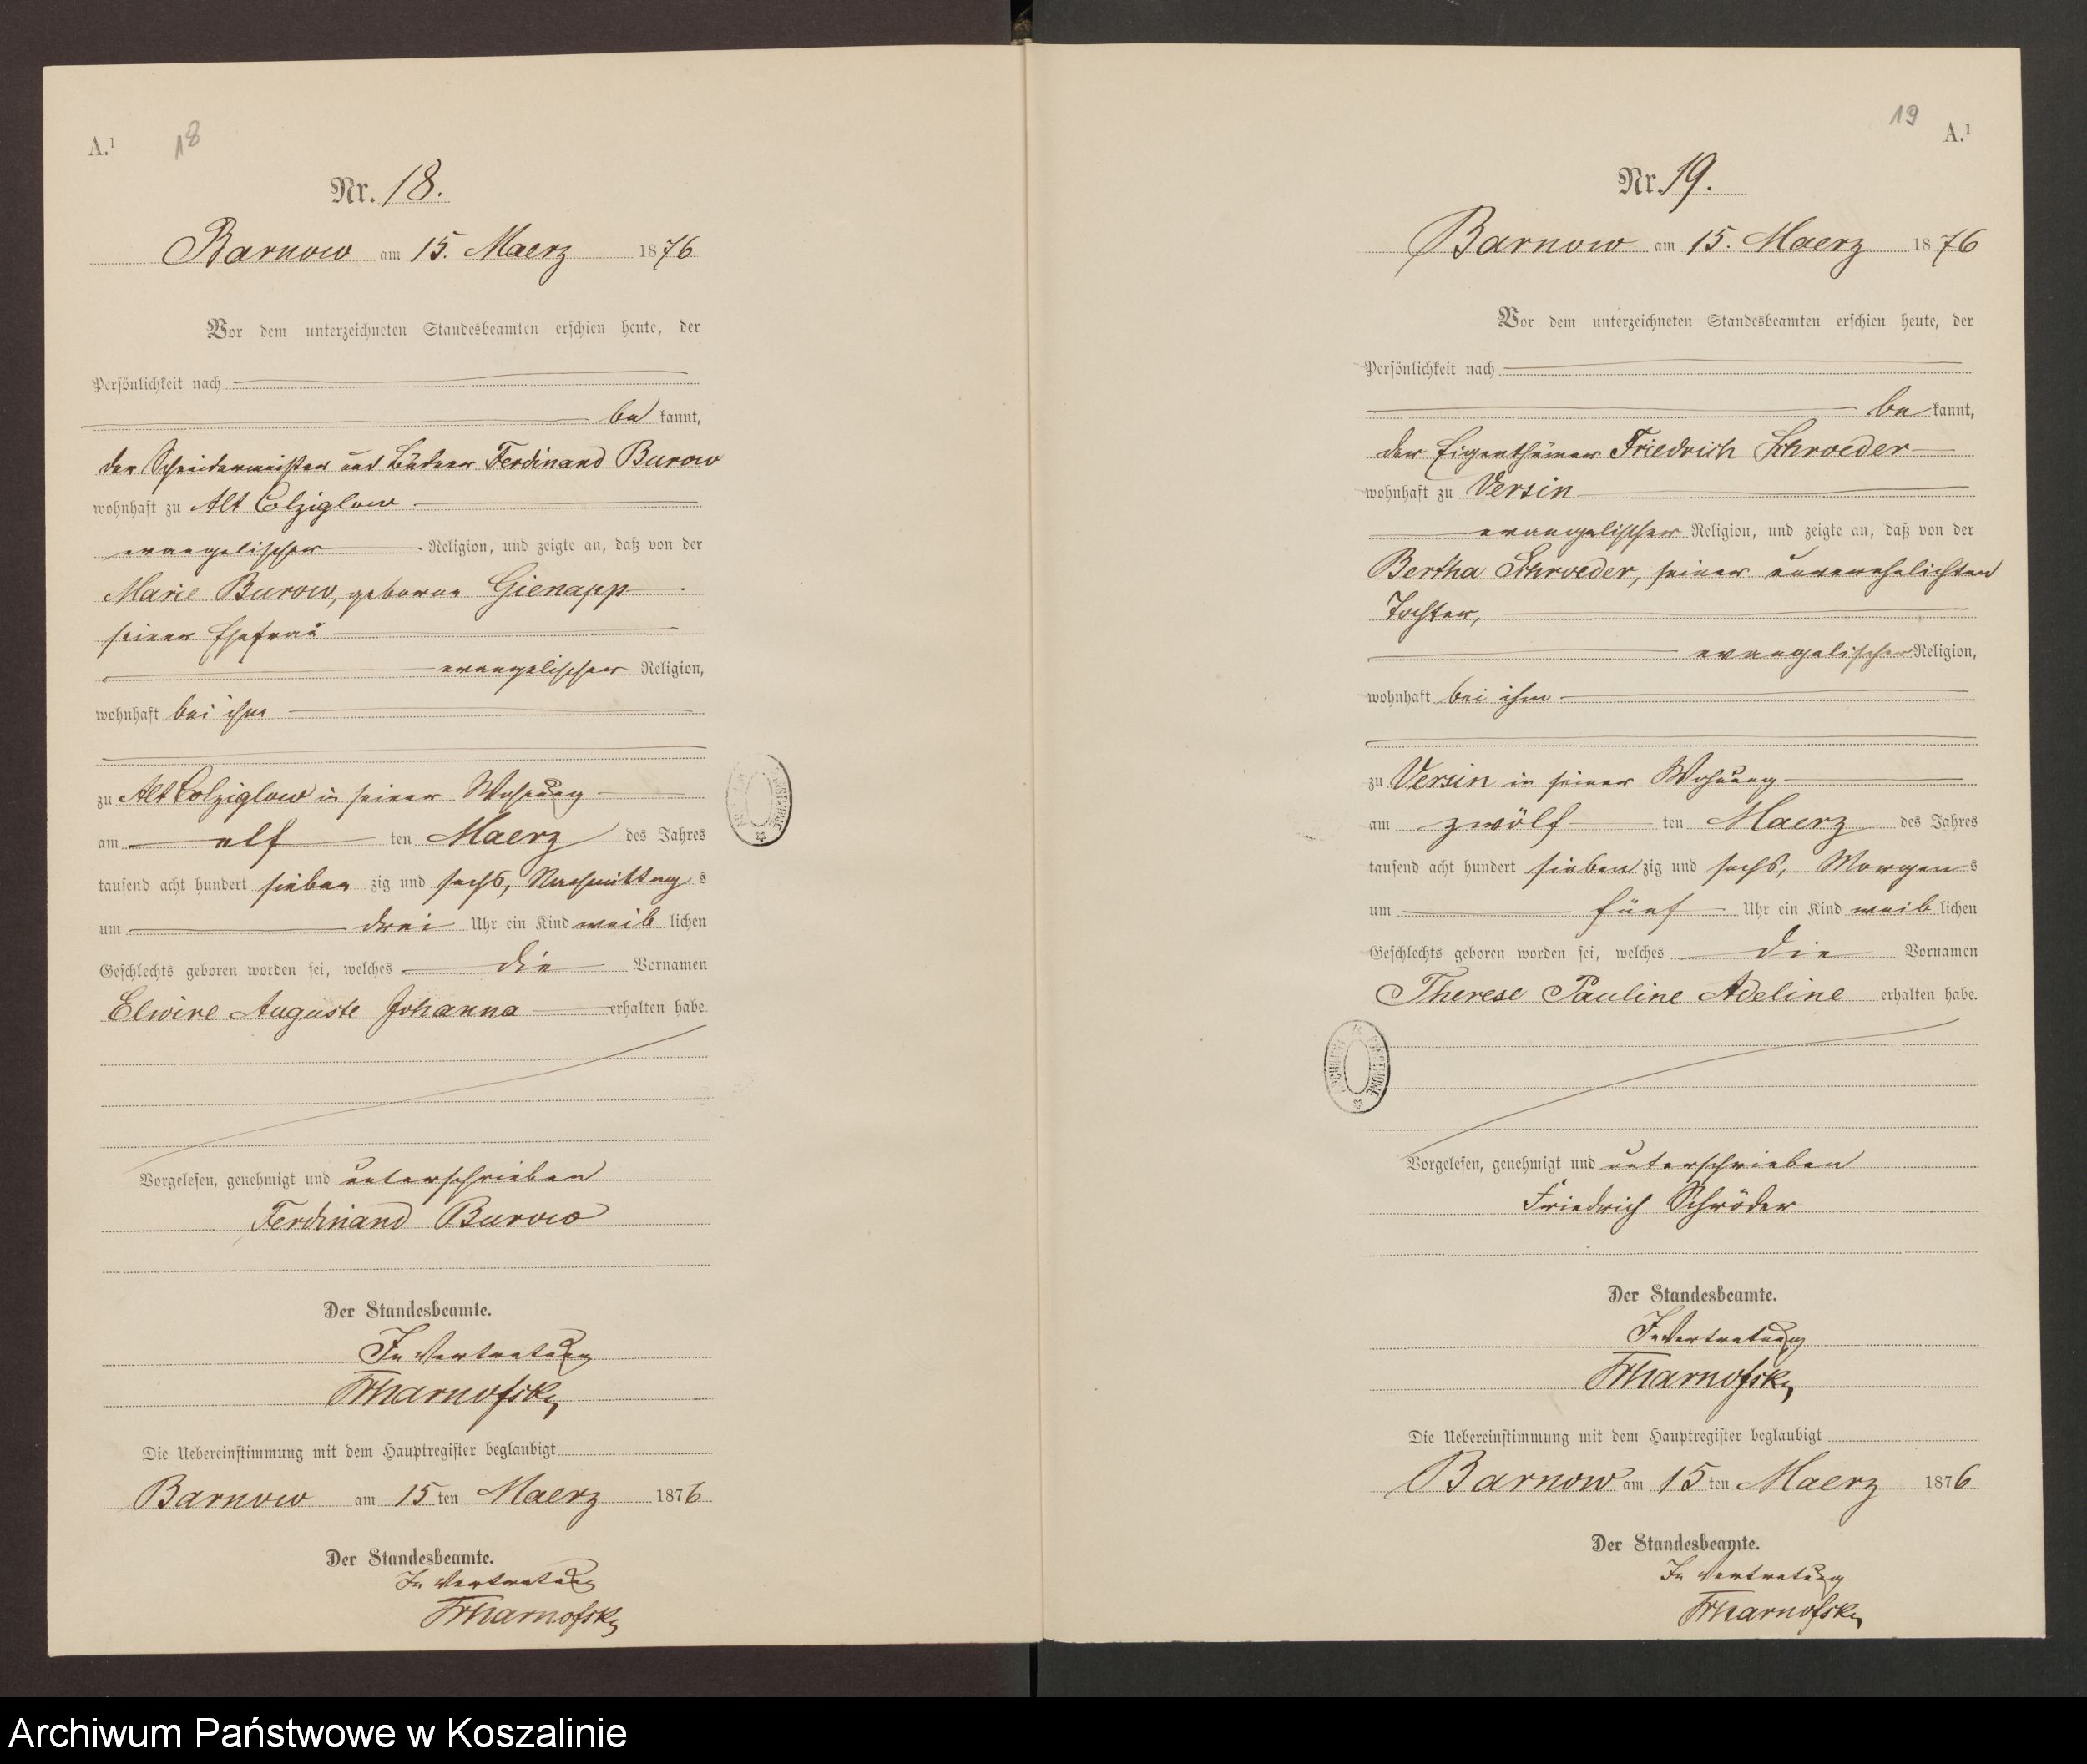 A.¹
18
Nr. 18.
Barnow am 15. Maerz 1876
Vor dem unterzeichneten Standesbeamten erschien heute, der
Persönlichkeit nach
be kannt,
der Schneidermeister und Büdner Ferdinand Burow
wohnhaft zu Alt Colziglow
evangelischer Religion, und zeigte an, daß von der
Marie Burow, geborne Gienapp
seiner Ehefrau
evangelischer Religion,
wohnhaft bei ihm
zu Alt Colziglow in seiner Wohnung
am elf ten Maerz des Jahres
tausend acht hundert sieben zig und sechs, Nachmittag s
um drei Uhr ein Kind weib lichen
Geschlechts geboren worden sei, welches die Vornamen
Elwire Auguste Johanna erhalten habe.
Vorgelesen, genehmigt und unterschrieben
Ferdinand Burow
Der Standesbeamte.
In Vertretung
Die Uebereinstimmung mit dem Hauptregister beglaubigt
Barnow am 15 ten Maerz 1876
Der Standesbeamte.
In Vertretung
19
A.¹
Nr. 19.
Barnow am 15. Maerz 1876
Vor dem unterzeichneten Standesbeamten erschien heute, der
Persönlichkeit nach
be kannt,
der Eigenthümer Friedrich Schroeder
wohnhaft zu Versin
evangelischer Religion, und zeigte an, daß von der
Bertha Schroeder, seiner unverehelichten
Tochter,
evangelischer Religion,
wohnhaft bei ihm
zu Versin in seiner Wohnung
am zwölf ten Maerz des Jahres
tausend acht hundert sieben zig und sechs, Morgen s
um fünf Uhr ein Kind weib lichen
Geschlechts geboren worden sei, welches die Vornamen
Therese Pauline Adeline erhalten habe.
Vorgelesen, genehmigt und unterschrieben
Friedrich Schröder
Der Standesbeamte.
In Vertretung
Die Uebereinstimmung mit dem Hauptregister beglaubigt
Barnow am 15 ten Maerz 1876
Der Standesbeamte.
In Vertretung
Archiwum Państwowe w Koszalinie